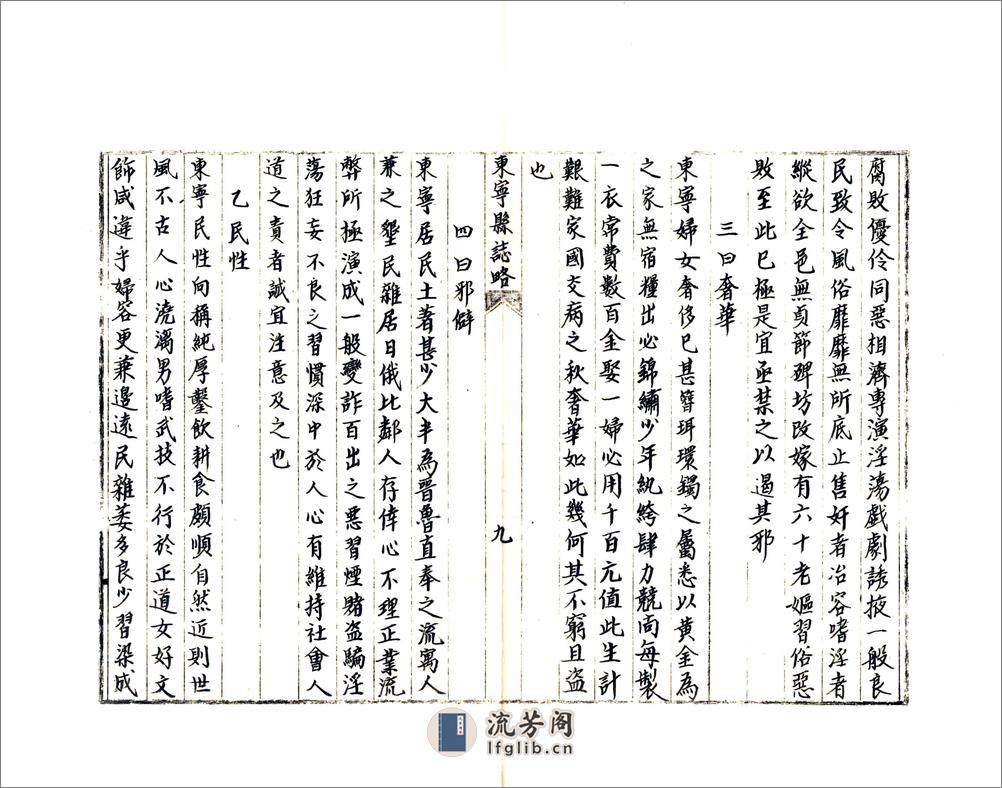 腐敗優伶同惡相濟專演淫蕩戲劇誘掖一般良
民致令風俗靡靡無所底止售奸者冶容嗜淫者
縱欲全邑無貞節碑坊改嫁有六十老嫗習俗惡
敗至此已極是宜亟禁之以遏其邪
三曰奢華
東寧婦女奢侈已甚簪珥環鐲之屬悉以黃金為
之家無宿糧出必錦繡少年紈絝肆力競尚每製
一衣常費數百金娶一婦必用千百元值此生計
艱難家國交病之秋奢華如此幾何其不窮且盜
也
東寧縣誌略
九
四曰邪僻
東寧居民土著甚少大半為晉魯直奉之流寓人
兼之墾民雜居日俄比鄰人存倖心不理正業流
弊所極演成一般變詐百出之惡習煙賭盜騙淫
蕩狂妄不良之習慣深中於人心有維持社會人
道之責者誠宜注意及之也
乙民性
東寧民性向稱純厚鑿飲耕食頗順自然近則世
風不古人心澆漓男嗜武技不行於正道女好文
飾咸違乎婦容更兼邊遠民雜萎多良少習染成
流芳阁
lfglib.cn